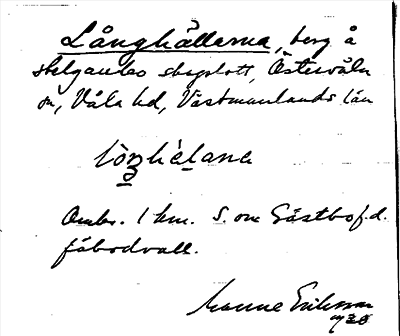 Långhällarna, berg å
Helgandes skogslott, Östervåla
sn, Våla hd, Västmanlands län
Omkr. 1 km. S. om Gästbo f.d.
fäbodvall.
Manne Eriksson
1930